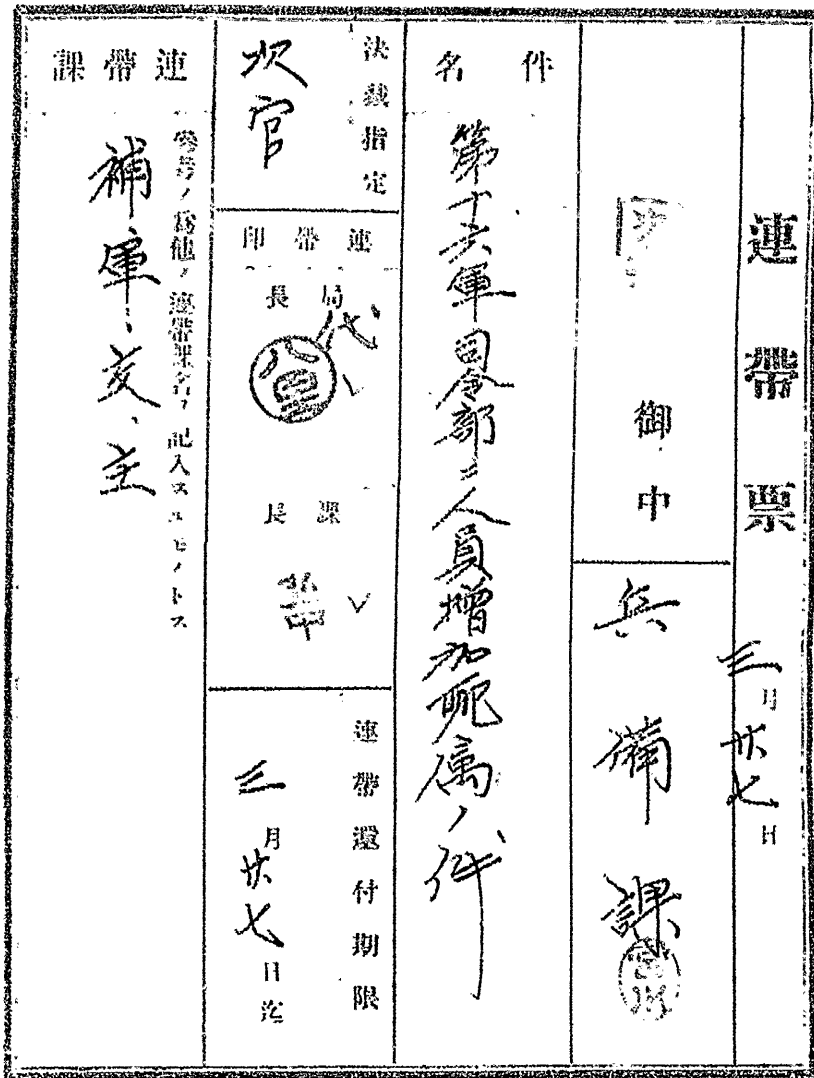 連帶票
三月廿七日
御中
兵備課
件名
第十六軍司令部ニ人員増加配属ノ件
決裁指定
次官
連帶印
局長
代
課長
連帶還付期限
三月廿七日迄
連帶課
參考ノ爲他ノ連帶課名ヲ記入スルモノトス
補軍、交、主